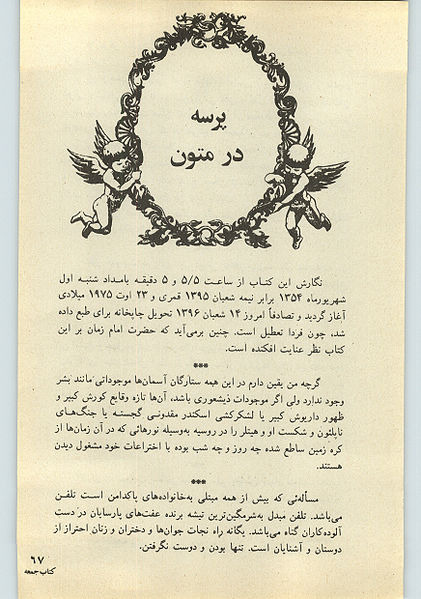 پرسه
در متون
نگارش این کتاب از ساعت ۵/۵ و ۵ دقیقه بامداد شنبه اول
شهریورماه ۱۳۵۴ برابر نیمه شعبان ۱۳۹۵ قمری و ۲۳ اوت ۱۹۷۵ میلادی
آغاز گردید و تصادفاً امروز ۱۴ شعبان ۱۳۹۶ تحویل چاپخانه برای طبع داده
شد، چون فردا تعطیل است. چنین برمی‌آید که حضرت امام زمان بر این
کتاب نظر عنایت افکنده است.
***
گرچه من یقین دارم در این همه ستارگان آسمان‌ها موجوداتی مانند بشر
وجود ندارد ولی اگر موجودات ذیشعوری باشد، آن‌ها تازه وقایع کورش کبیر و
ظهور داریوش کبیر یا لشکرکشی اسکندر مقدونی گجسته یا جنگ‌های
ناپلئون و شکست او و هیتلر را در روسیه به‌وسیله نورهائی که در آن زمان‌ها از
کره زمین ساطع شده چه روز و چه شب بوده با اختراعات خود مشغول دیدن
هستند.
***
مسأله‌ئی که بیش از همه مبتلی به‌خانواده‌های پاکدامن است تلفن
می‌باشد. تلفن مبدل به‌شرمگین‌ترین تیشه برنده عفت‌های پارسایان در دست
آلوده‌کاران گناه می‌باشد. یگانه راه نجات جوان‌ها و دختران و زنان احتراز از
دوستان و آشنایان است. تنها بودن و دوست نگرفتن.
۶۷
کتاب جمعه